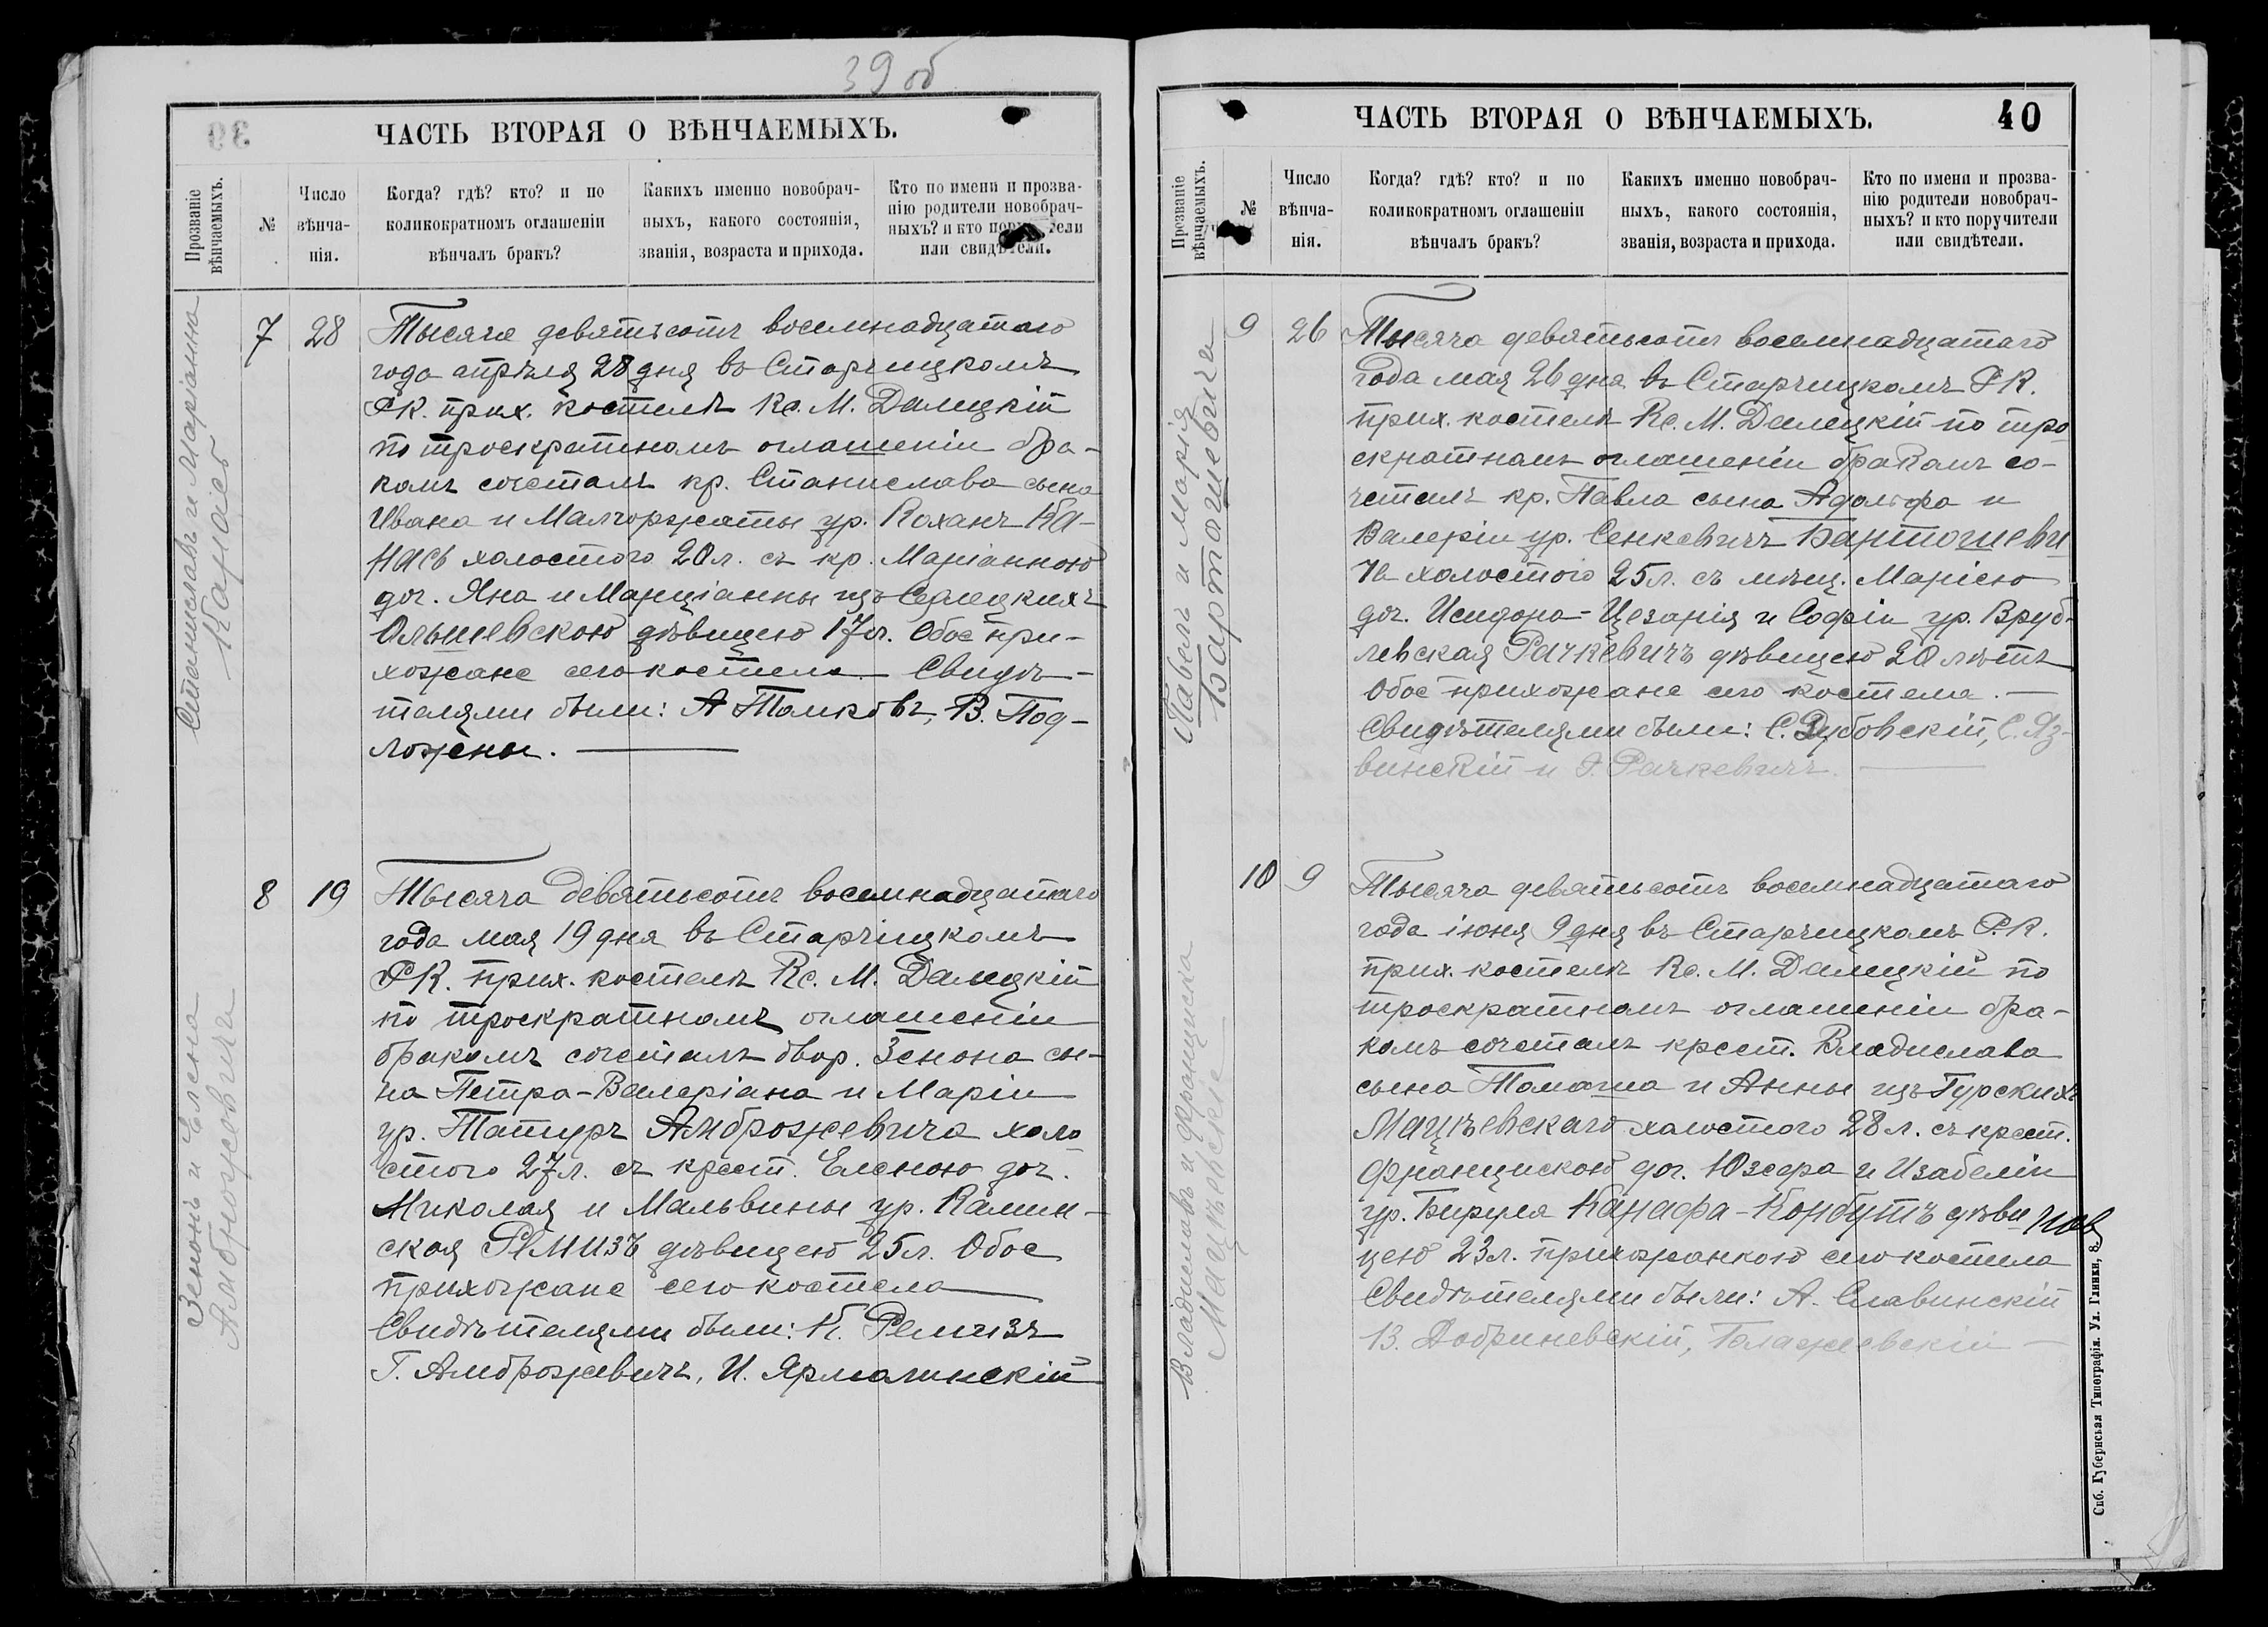 39 об
ЧАСТЬ ВТОРАЯ О ВѢНЧАЕМЫХЪ.
Прозваніе вѣнчаемыхъ.
№
Число вѣнча-нія.
Когда? гдѣ? кто? и по
коликократномъ оглашеніи
вѣнчалъ бракъ?
Какихъ именно новобрач-
ныхъ, какого состоянія,
званія, возраста и прихода.
Кто по имени и прозва-
нію родители новобрач-
ныхъ? и кто
или свидѣтели.
Станиславъ и Маріанна
Карась
7
28
Тысяча девятьсотъ восемнадцатаго
года апрѣля 28 дня въ Старчицкомъ
Р.К. прих. костелѣ Кс. М. Далецкій
по троекратномъ оглашеніи бра-
комъ сочеталъ кр. Станислава сына
Ивана и Малгоржаты ур. Коханъ Ка-
рась холостого 20 л. съ кр. Маріанною
доч. Яна и Марціанны изъ
Ольшевскою дѣвицею 17 л. Обое при-
хожане сего костела. — Свидѣ-
телями были: А Толковъ, В. Под-
ложены. —
Зенонъ и Елена
Амброжевичи
8
19
Тысяча девятьсотъ восемнадцатаго
года мая 19 дня въ Старчицкомъ
Р.К. прих. костелѣ Кс. М. Далецкій
по троекратномъ оглашеніи
бракомъ сочеталъ двор. Зенона сы-
на Петра-Валеріана и Маріи
ур. Татуръ Амброжевича холо
стого 27 л. съ крест. Еленою доч.
Миколая и Мальвины ур. Камин-
ская Ремизъ дѣвицею 25 л. Обое
прихожане сего костела —
Свидѣтелями были: К. Ремизъ
Г. Амброжевичъ, И. Ярмолинскій
ЧАСТЬ ВТОРАЯ О ВѢНЧАЕМЫХЪ.
40
Прозваніе вѣнчаемыхъ.
№
Число вѣнча-нія.
Когда? гдѣ? кто? и по
коликократномъ оглашеніи
вѣнчалъ бракъ?
Какихъ именно новобрач-
ныхъ, какого состоянія,
званія, возраста и прихода.
Кто по имени и прозва-
нію родители новобрач-
ныхъ? и кто поручители
или свидѣтели.
Павелъ и Марія
Бартошевичи
9
26
Тысяча девятьсотъ восемнадцатаго
года мая 26 дня въ Старчицкомъ Р.К.
прих. костелѣ Кс. М. Далецкій по тро
екратномъ оглашеніи бракомъ со-
четалъ кр. Павла сына Адольфа и
Валеріи ур. Сенкевичъ Бартошеви
ча холостого 25 л. съ мѣщ. Маріею
доч. Исидора-Цезарія и Софіи ур. Вруб-
левская Рачкевичъ дѣвицею 20 лѣтъ
Обое прихожане сего костела. —
Свидѣтелями были: С. Дубовскій, С. Яз-
винскій и Рачкевичъ. —
Владиславъ и Франциска
Мацѣевскіе
10
9
Тысяча девятьсотъ восемнадцатаго
года іюня 9 дня въ Старчицкомъ Р.К.
прих. костелѣ Кс. М. Далецкій по
троекратномъ оглашеніи бра-
комъ сочеталъ крест. Владислава
сына Томаша и Анны изъ Гурскихъ
Мацѣевскаго холостого 28 л. съ крест.
Францискою доч. Юзефа и Изабеліи
ур. Бируля Канафа-Корбутъ дѣви
цею 23 л. прихожанкою сего костела
Свидѣтелями были: А. Славинскій
В. Добриневскій, Гологжевскій —
Спб. Губернская Типографія. Ул. Глинки, 8.